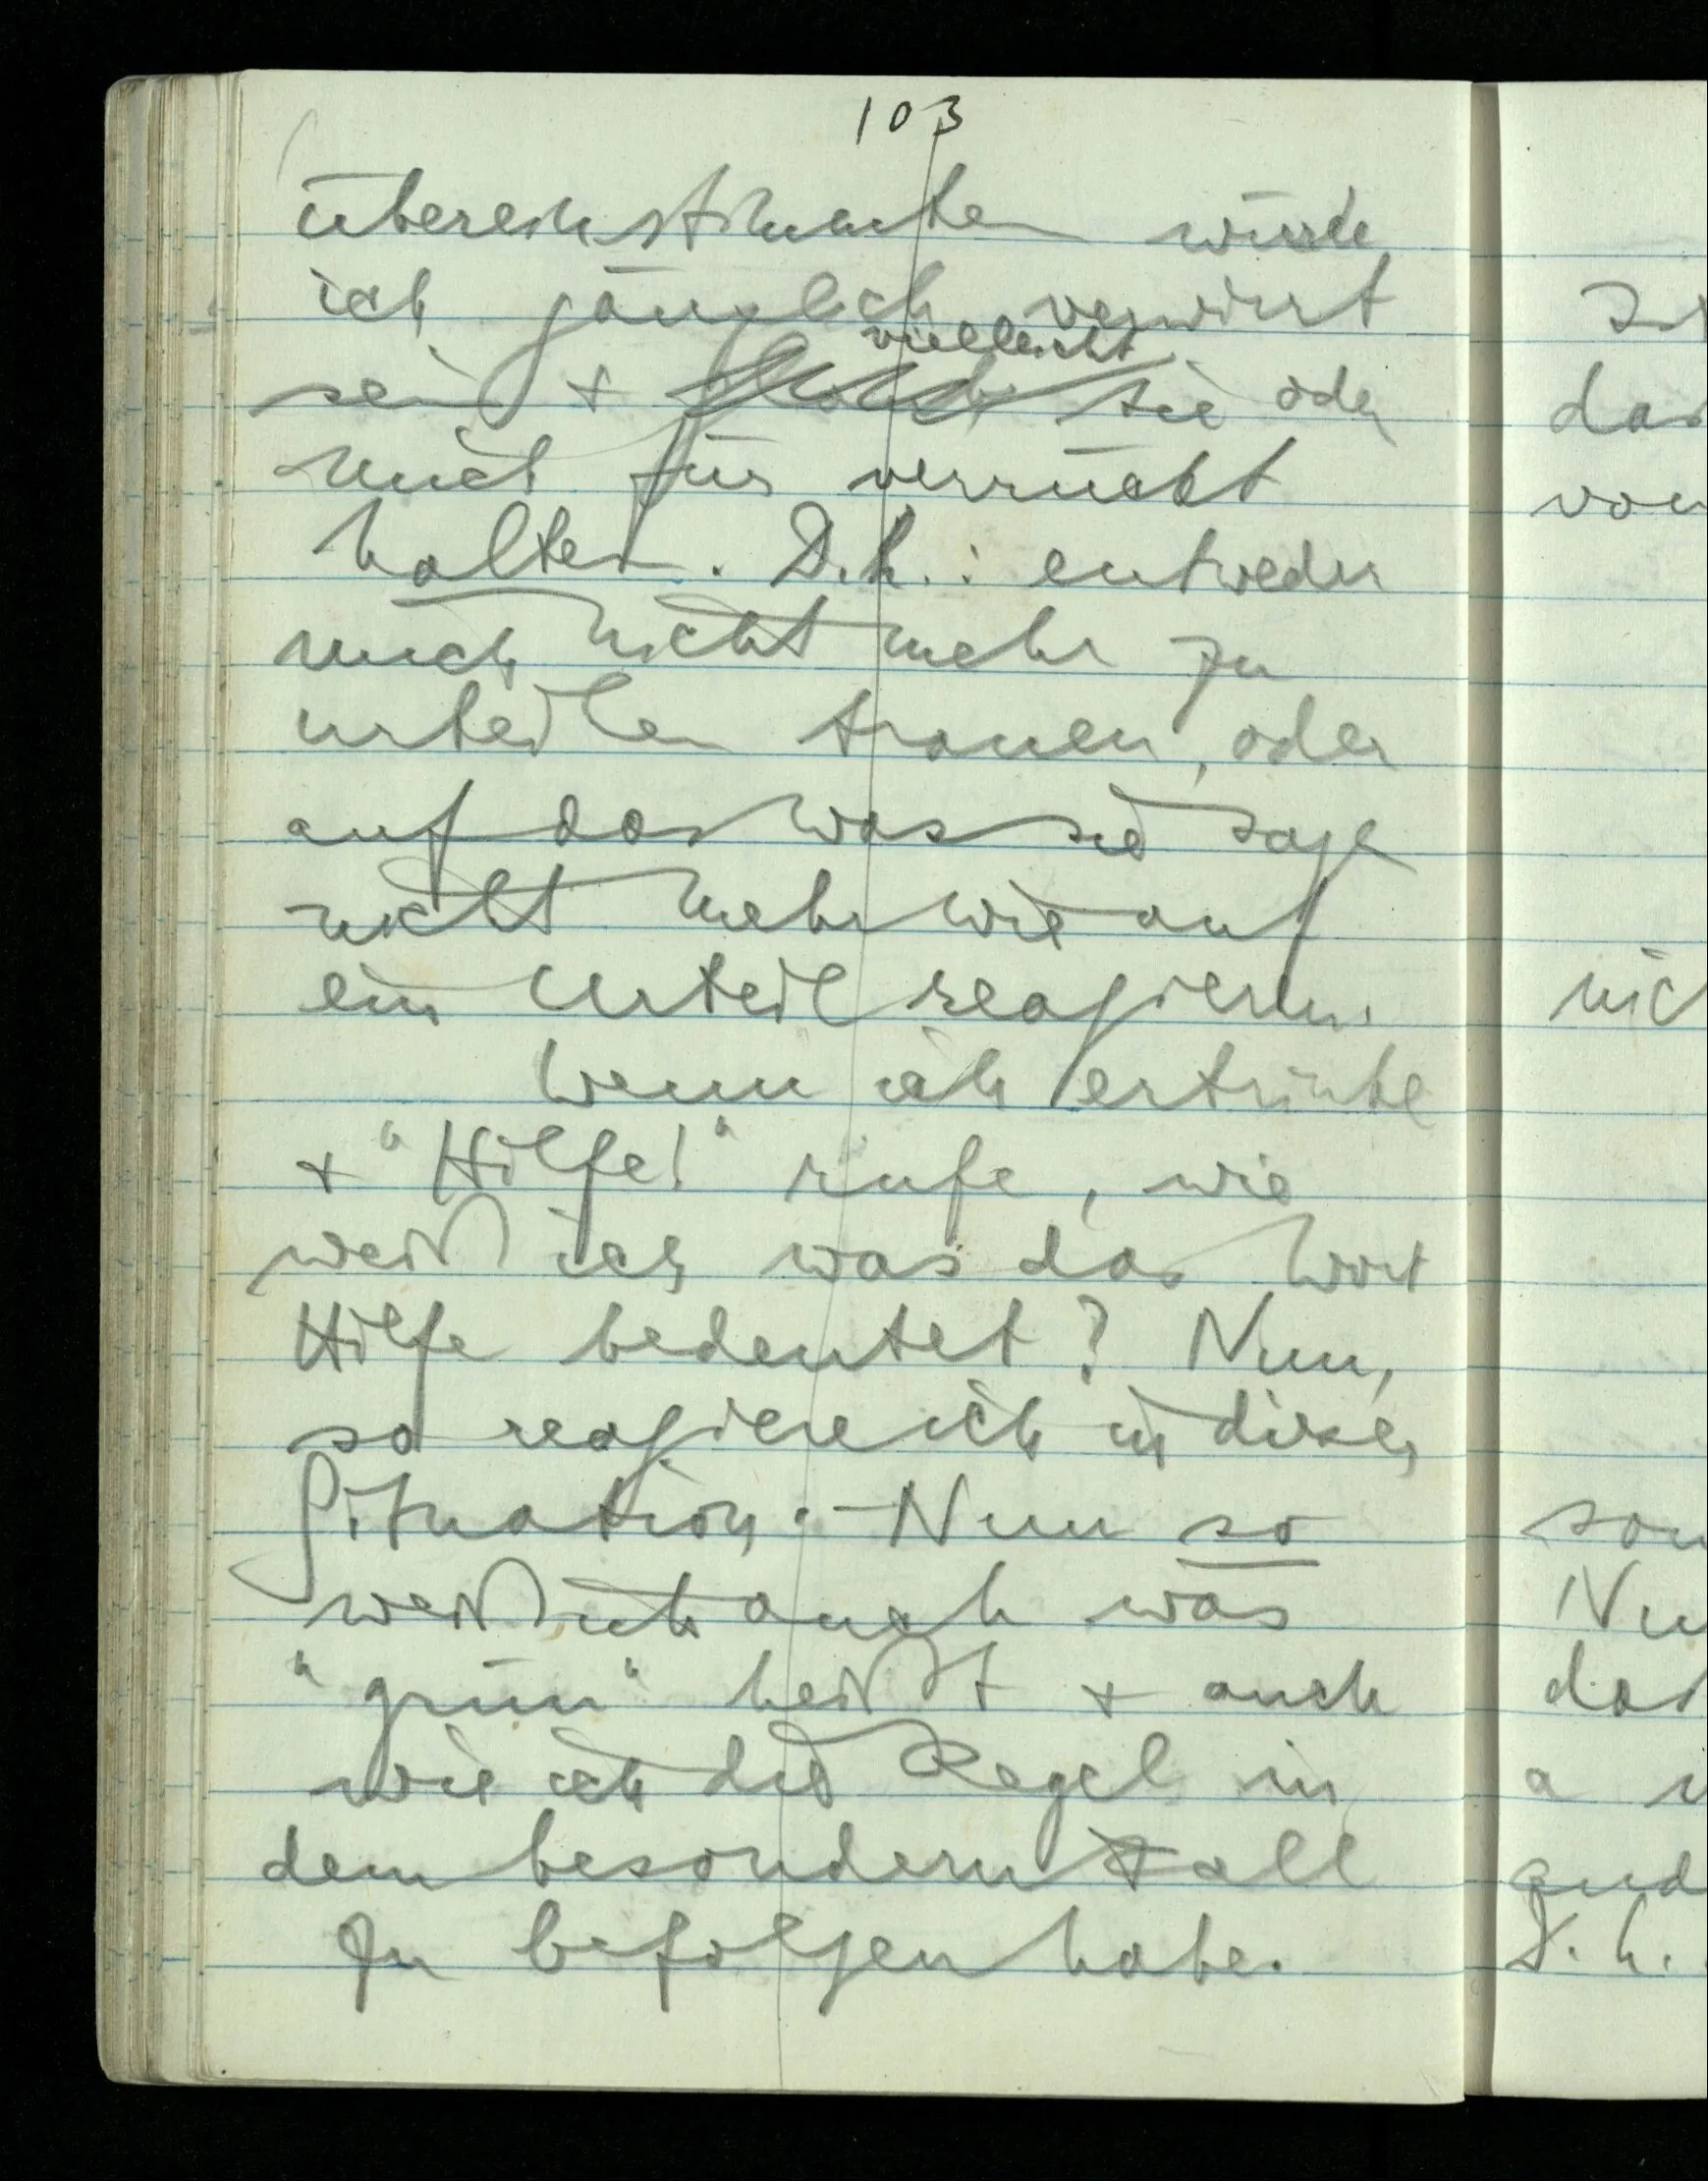 103
übereinstimmten würde
ich gänzlich verwirrt
vielleicht
sein + sie oder
mich für verrückt
halten. D.h.: entweder
mich nicht mehr zu
urteilen trauen, oder
auf das was sie sagen
nicht mehr wie auf
ein Urteil reagieren.
Wenn ich ertrinke
+ "Hilfe!" rufe, wie
weiß ich was das Wort
Hilfe bedeutet? Nun,
so reagiere ich in dieser
Situation. – Nun so
weiß ich auch was
"grün" heißt + auch
wie ich die Regel in
dem besondern Fall
zu befolgen habe.